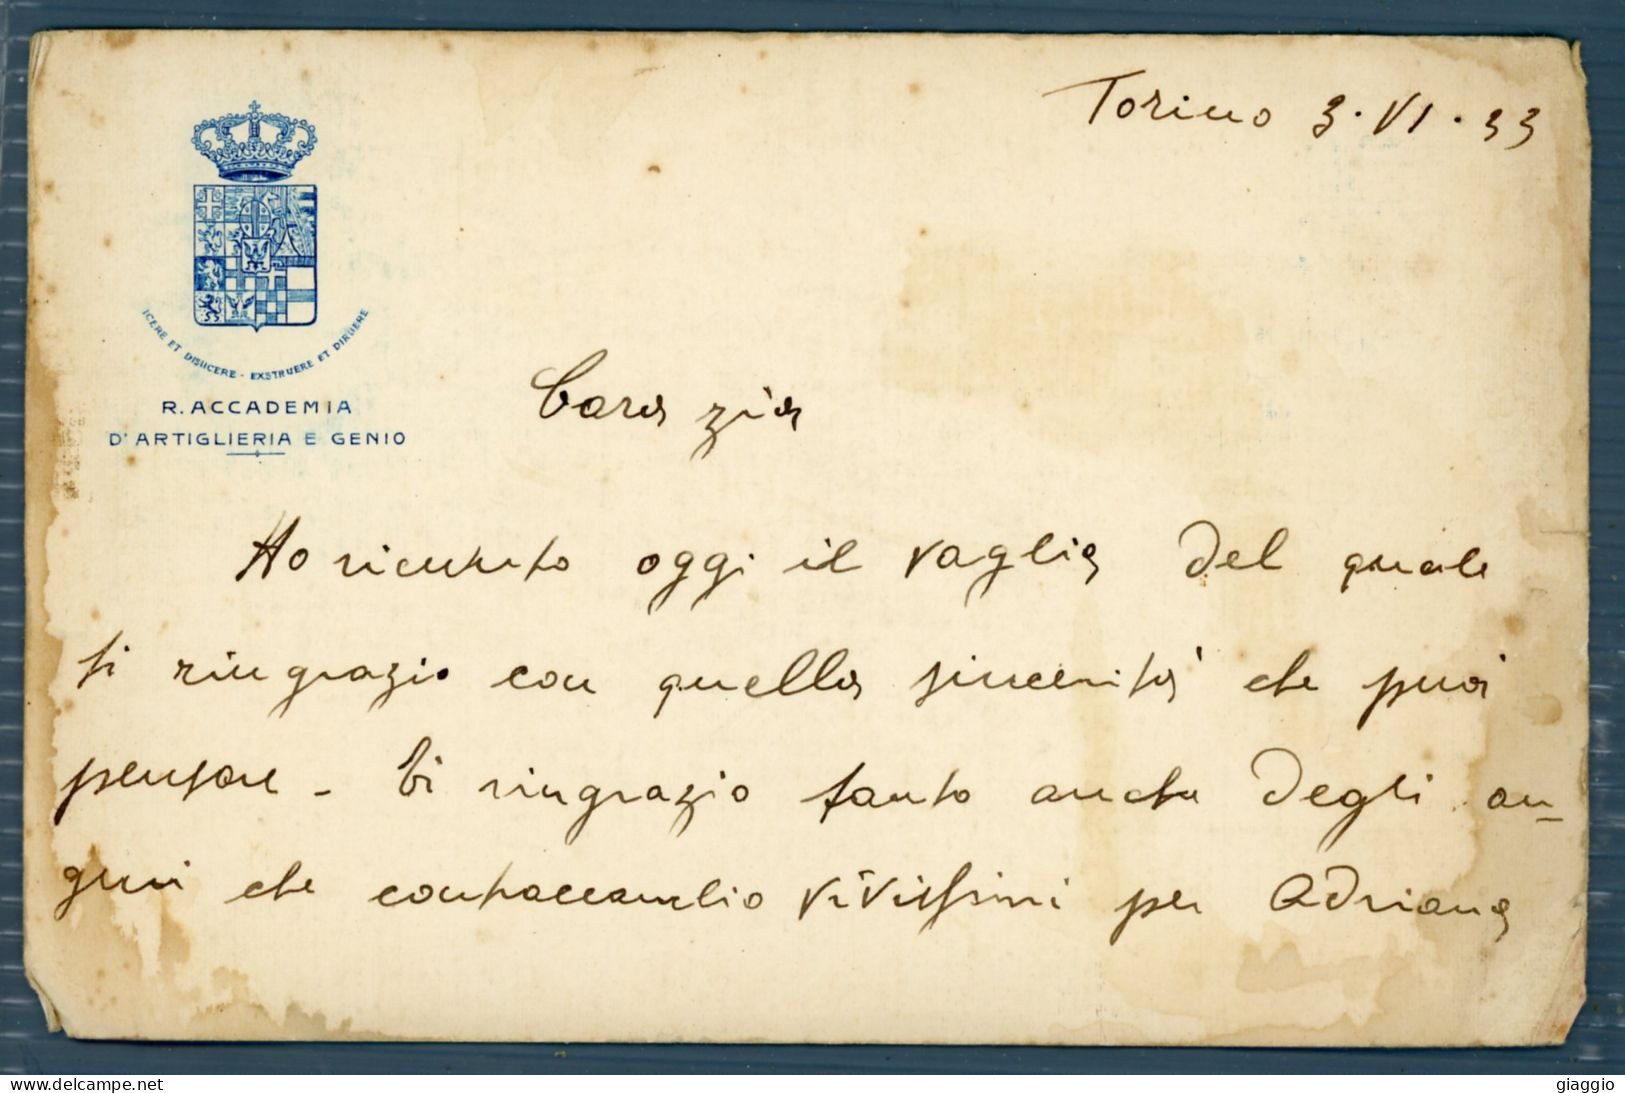 Torino 3·VI·33
ICERE ET DISIICERE - EXSTRUERE ET DIRUERE
R. ACCADEMIA
D'ARTIGLIERIA E GENIO
Cara zia
Ho ricevuto oggi il vaglia del quale
ti ringrazio con quella sincerità che puoi
pensare - Ti ringrazio tanto anche degli au-
guri che contraccambio vivissimi per Adriana
giaggio
www.delcampe.net